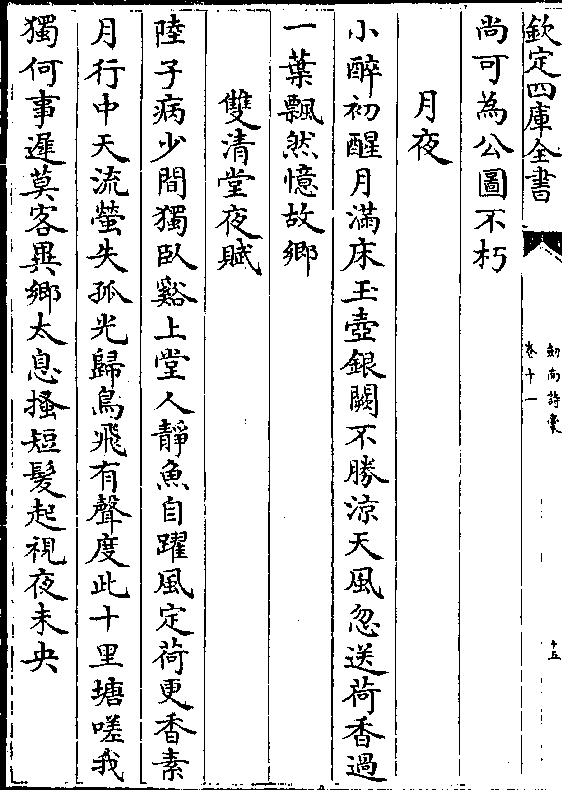 欽定四庫全書
劍南詩稾
卷十一
十五
尚可為公圖不朽
月夜
小醉初醒月滿床玉壺銀闕不勝涼天風忽送荷香過
一葉飄然憶故鄉
雙清堂夜賦
陸子病少間獨臥谿上堂人靜魚自躍風定荷更香素
月行中天流螢失孤光歸鳥飛有聲度此十里塘嗟我
獨何事遲莫客異鄉太息搔短髮起視夜未央